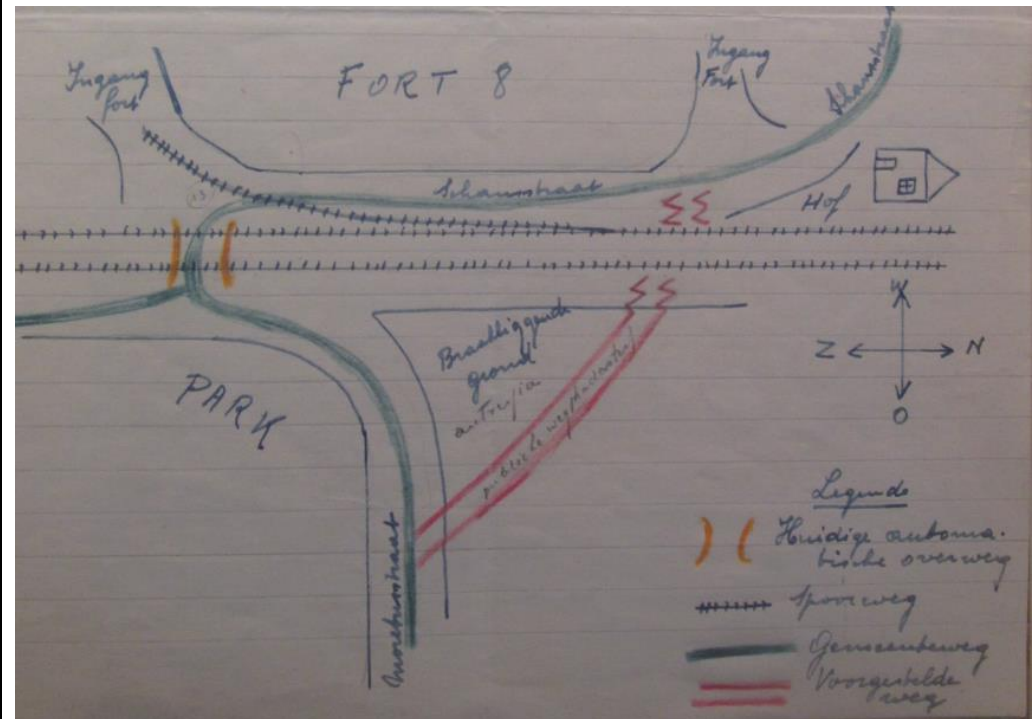 Ingang
fort
FORT 8
Ingang
Fort
Schansstraat
Schansstraat
Hof
W
Z
N
O
PARK
Braakliggende
grond
publieke weg
Legende
Huidige automa-
tische overweg
Spoorweg
Gemeenteweg
Voorgestelde
weg